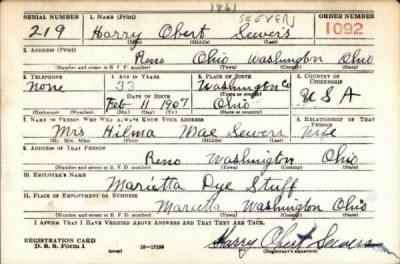 1861
SERIAL NUMBER 1. NAME (Print) SEEVERS ORDER NUMBER
219 Harry Obert Seevers 1092
(First) (Middle) (Last)
2. ADDRESS (Print)
Reno Ohio Washington Ohio
(Number and street or R. F. D. number) (Town) (County) (State)
3. TELEPHONE 4. AGE IN YEARS 5. PLACE OF BIRTH 6. COUNTRY OF CITIZENSHIP
None 33 Washington Co
DATE OF BIRTH (Town or county)
Feb 11 1907 Ohio U S A
(Exchange) (Number) (Mo.) (Day) (Yr.) (State or country)
7. NAME OF PERSON WHO WILL ALWAYS KNOW YOUR ADDRESS 8. RELATIONSHIP OF THAT PERSON
Mrs Hilma Mae Seevers Wife
(Mr., Mrs., Miss) (First) (Middle) (Last)
9. ADDRESS OF THAT PERSON
Reno Washington Ohio
(Number and street or R. F. D. number) (Town) (County) (State)
10. EMPLOYER'S NAME
Marietta Dye Stuff
11. PLACE OF EMPLOYMENT OR BUSINESS
Marietta Washington Ohio
(Number and street or R. F. D. number) (Town) (County) (State)
I AFFIRM THAT I HAVE VERIFIED ABOVE ANSWERS AND THAT THEY ARE TRUE.
REGISTRATION CARD
D. S. S. Form 1 (over) 16-17105 Harry Obert Seevers
(Registrant's signature)